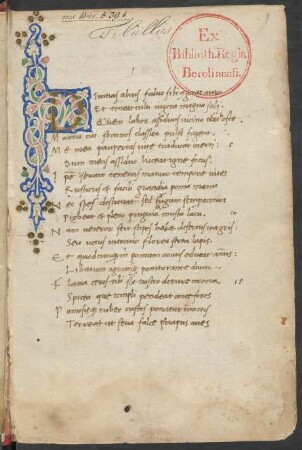 ms. Diez. B. 39 b
Tibullus
1
Ex
Biblioth. Regia
Berolinensi.
Divitias alius fulvo sibi congerat auro
Et teneat culti iugera magna soli
Quem labor assiduus vicino terreat hoste
Martia cui somnos classica pulsa fugent
Me mea paupertas vite traducat inerti
5
Dum meus assiduo luceat igne focus
Ipse seram teneras maturo tempore vites
Rusticus et facili grandia poma manu
Nec spes destituat sed frugum semper acervos
Prebeat et pleno pinguia musta lacu
Nam veneror seu stipes habet desertus in agris
Seu vetus in trivio florea serta lapis
Et quodcumque pomum novus educat annus
Libatum agricole ponitur ante deum
Flava ceres tibi sit nostro de rure corona
15
Spicea que templi pendeat ante fores
Pomosisque ruber custos ponatur in ortis
Terreat ut seva falce priapus aves